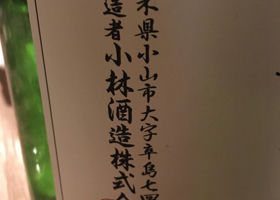 木県小山市大字卒島七四
造者小林酒造株式会